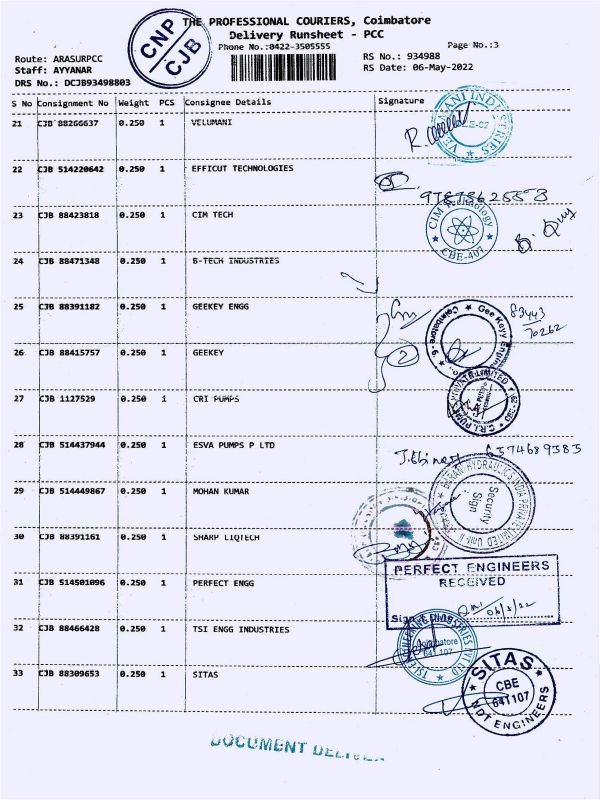 THE PROFESSIONAL COURIERS, Coimbatore
Delivery Runsheet - PCC
CNP
CJB
Phone No.:0422-3505555
Page No.:3
Route: ARASURPCC
Staff: AYYANAR
DRS No.: DCJB93498803
RS No.: 934988
RS Date: 06-May-2022
S No Consignment No Weight PCS Consignee Details Signature
21 CJB 88266637 0.250 1 VELUMANI
22 CJB 514220642 0.250 1 EFFICUT TECHNOLOGIES
23 CJB 88423818 0.250 1 CIM TECH
CIM Technology
CBE-407
24 CJB 88471348 0.250 1 B-TECH INDUSTRIES
25 CJB 88391182 0.250 1 GEEKEY ENGG
83443
70262
26 CJB 88415757 0.250 1 GEEKEY
2
27 CJB 1127529 0.250 1 CRI PUMPS
28 CJB 514437944 0.250 1 ESVA PUMPS P LTD
6374689383
29 CJB 514449867 0.250 1 MOHAN KUMAR
Security
Sign
30 CJB 88391161 0.250 1 SHARP LIQTECH
31 CJB 514501096 0.250 1 PERFECT ENGG
PERFECT ENGINEERS
RECEIVED
32 CJB 88466428 0.250 1 TSI ENGG INDUSTRIES
Coimbatore
641 107
33 CJB 88309653 0.250 1 SITAS
SITAS
CBE
641107
NDT ENGINEERS
DOCUMENT